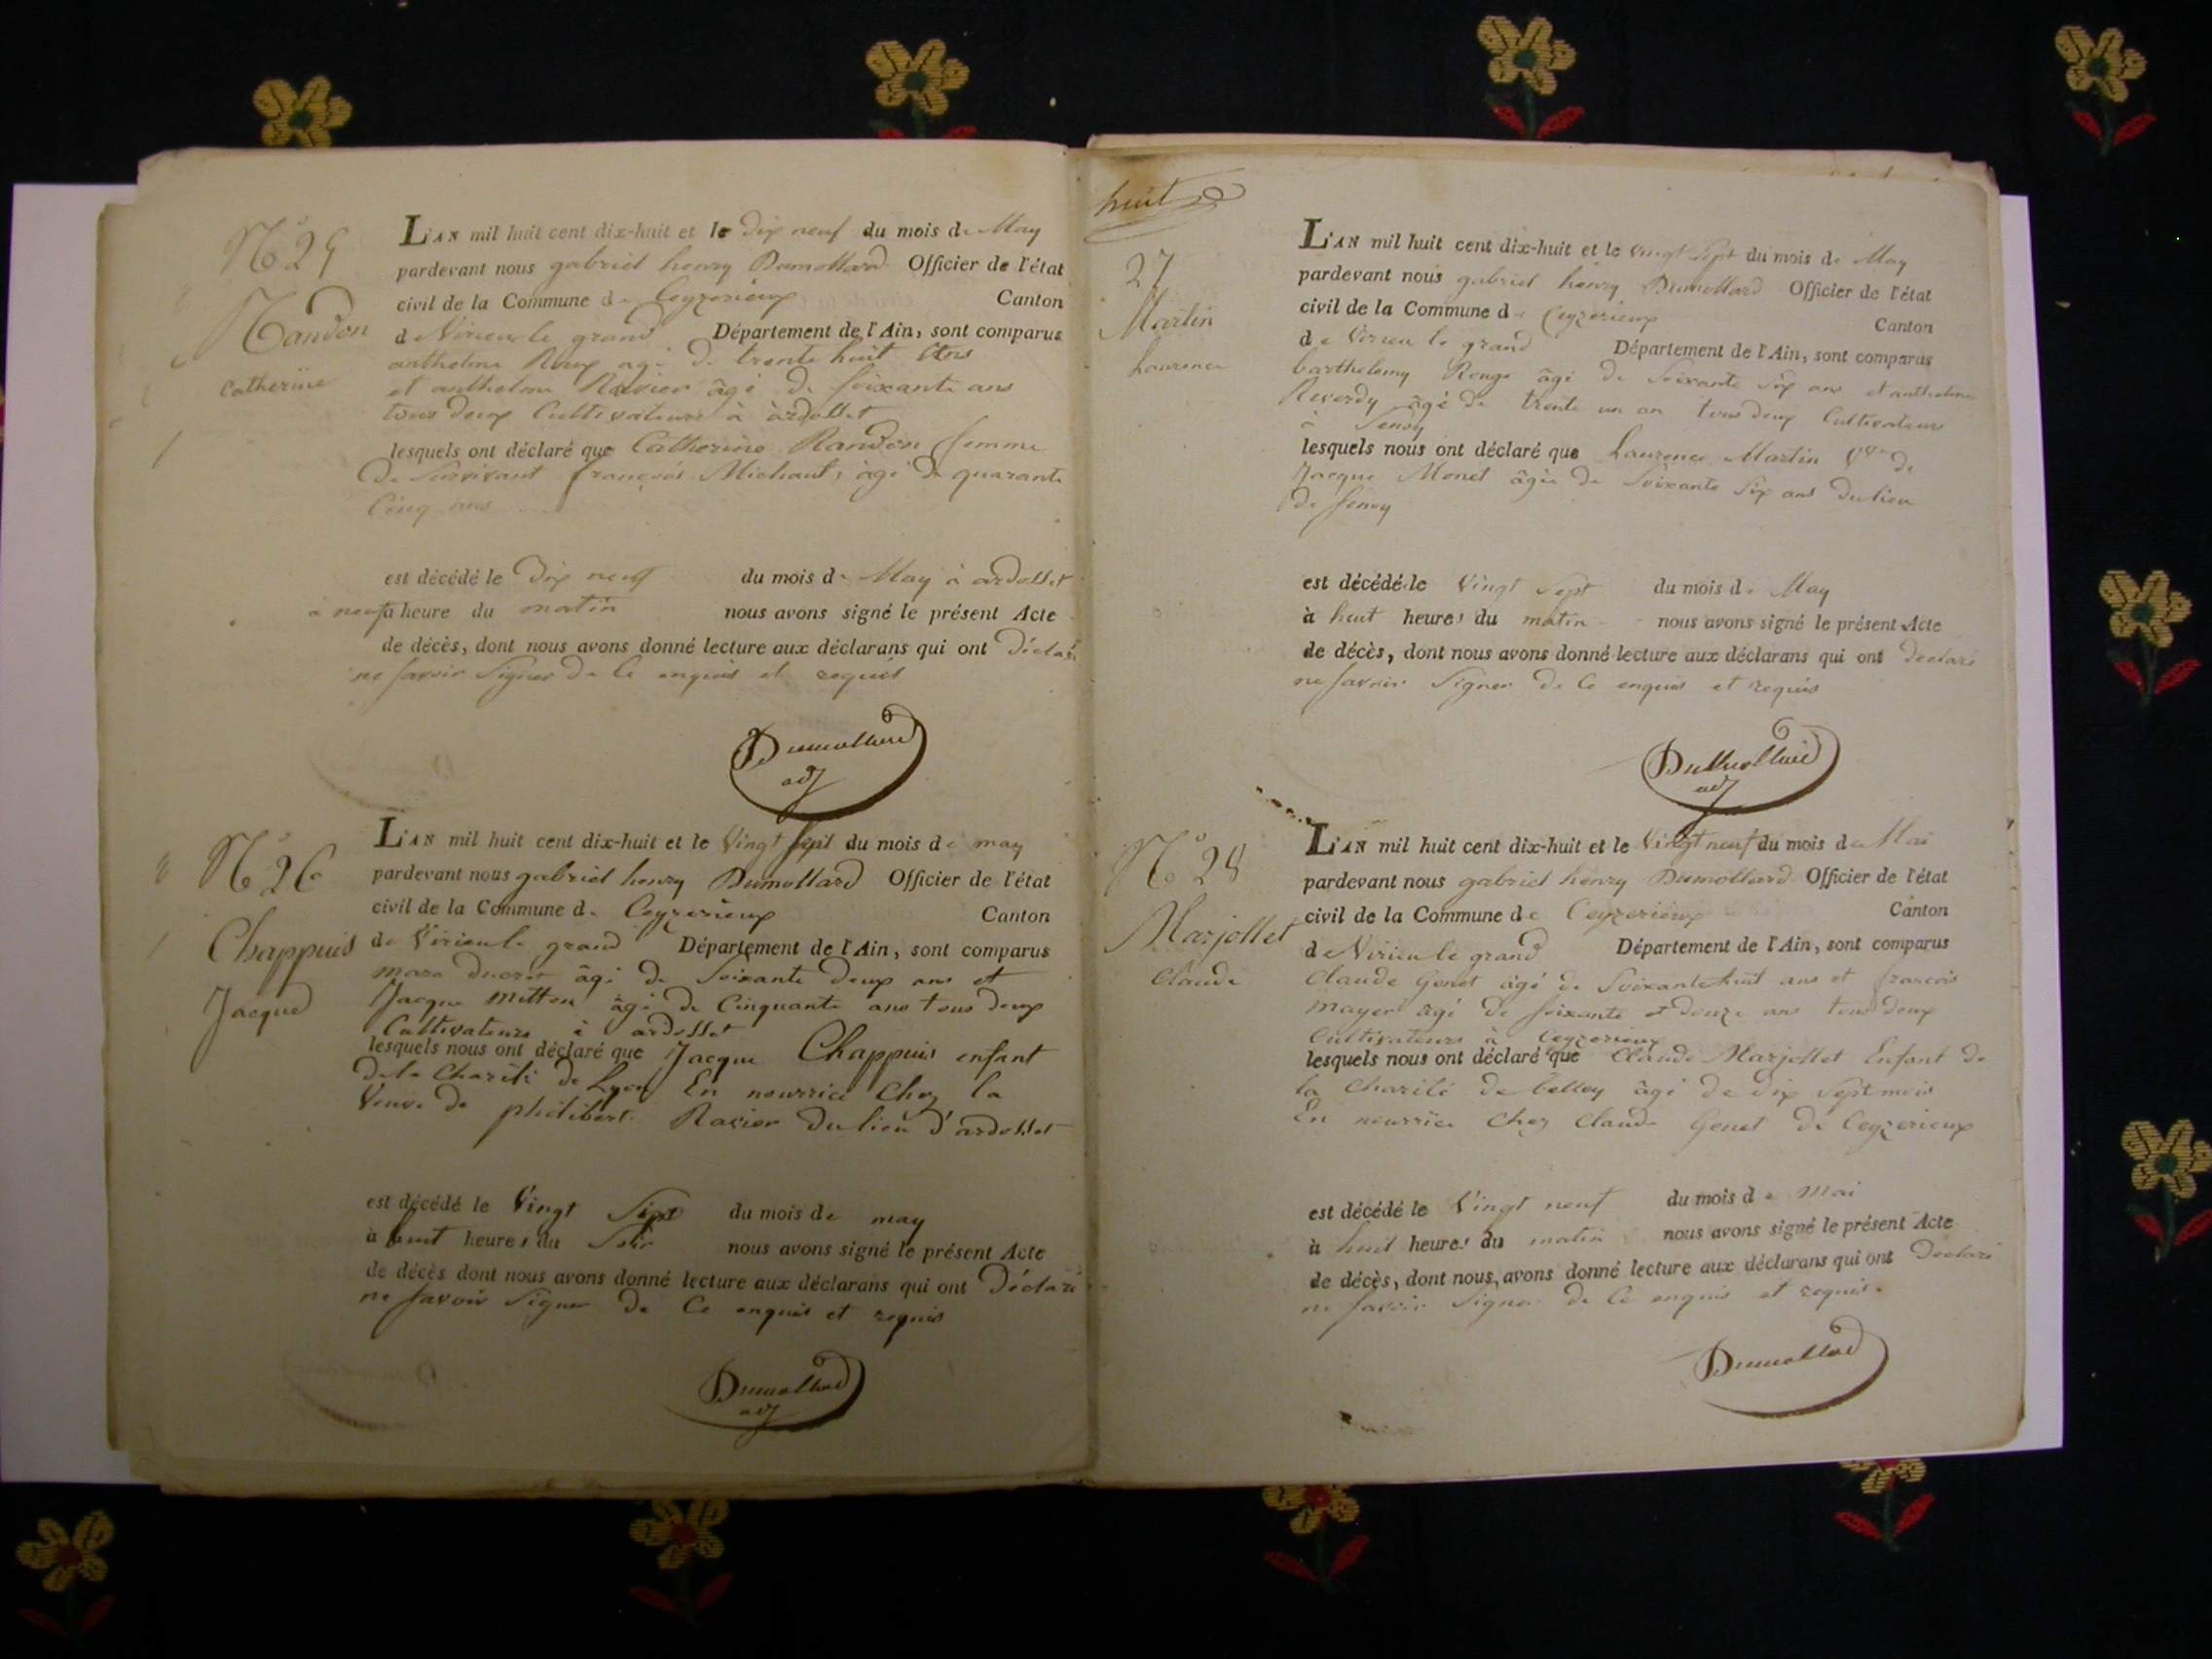 N° 25
Randon
Catherine
L'AN mil huit cent dix-huit et le dix neuf du mois de May
pardevant nous gabriel henry Dumollard Officier de l'état
civil de la Commune de Ceyzerieux Canton
de Virieu le grand Département de l'Ain, sont comparus
anthelme Roux agé de trente huit ans
et anthelme Ravier âgé de soixante ans
tous deux Cultivateurs à ardosset
lesquels ont déclaré que Catherine Randon femme
de Survivant françois Michaud, âgé de quarante
Cinq ans
est décédé le dix neuf du mois de May à ardosset
à neuf heure du matin nous avons signé le présent Acte
de décès, dont nous avons donné lecture aux déclarans qui ont Déclaré
ne savoir Signer de Ce enquis et requis
Dumollard
adj
N° 26
Chappuis
Jacque
L'AN mil huit cent dix-huit et le Vingt Sept du mois de may
pardevant nous gabriel henry Dumollard Officier de l'état
civil de la Commune de Ceyzerieux Canton
de Virieu le grand Département de l'Ain, sont comparus
marc âgé de Soixante deux ans et
Jacque Mitton âgé de Cinquante ans tous deux
Cultivateurs à ardosset
lesquels nous ont déclaré que Jacque Chappuis enfant
de la Charité de Lyon En nourrice Chez la
Veuve de philibert Ravier du lieu d'ardosset
est décédé le Vingt Sept du mois de may
à huit heures du Soir nous avons signé le présent Acte
de décès dont nous avons donné lecture aux déclarans qui ont Déclaré
ne savoir Signer de Ce enquis et requis
Dumollard
adj
huit
27
Martin
Laurence
L'AN mil huit cent dix-huit et le vingt Sept du mois de May
pardevant nous gabriel henry Dumollard Officier de l'état
civil de la Commune de Ceyzerieux Canton
de Virieu le grand Département de l'Ain, sont comparus
barthelemy Rouge âgé de Soixante Six ans et anthelme
Reverdy âgé de trente un an tous deux Cultivateurs
à Senoy
lesquels nous ont déclaré que Laurence Martin Vve de
Jacque Monet âgée de Soixante Six ans du lieu
de Senoy
est décédé le Vingt Sept du mois de May
à huit heures du matin nous avons signé le présent Acte
de décès, dont nous avons donné lecture aux déclarans qui ont Déclaré
ne savoir Signer de Ce enquis et requis
Dumollard
adj
N° 28
Marjollet
Claude
L'AN mil huit cent dix-huit et le Vingt neuf du mois de Mai
pardevant nous gabriel henry Dumollard Officier de l'état
civil de la Commune de Ceyzerieux Canton
de Virieu le grand Département de l'Ain, sont comparus
Claude Genet âgé de Soixante huit ans et françois
mayer âgé de soixante et douze ans tous deux
Cultivateurs à Ceyzerieux
lesquels nous ont déclaré que Claude Marjollet Enfant de
la Charité de belley âgé de dix Sept mois
En nourrice Chez Claude Genet de Ceyzerieux
est décédé le Vingt neuf du mois de Mai
à huit heures du matin nous avons signé le présent Acte
de décès, dont nous avons donné lecture aux déclarans qui ont Déclaré
ne savoir Signer de Ce enquis et requis.
Dumollard